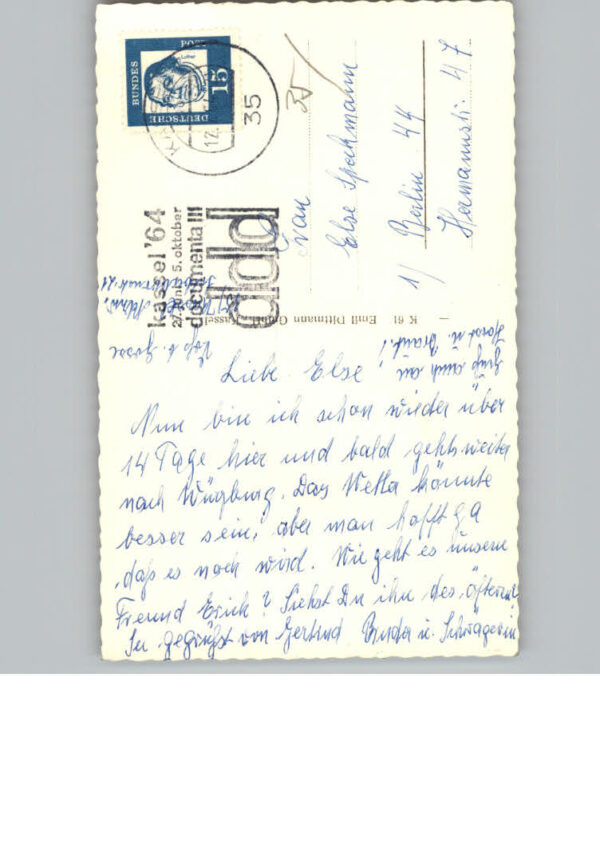 DEUTSCHE
BUNDES
POST
15
Luther
12.
35
kassel '64
27. juni 5. oktober
documenta III
ddd
35
Else
1/ Berlin 44
Hermannstr. 47
K 61 Emil Dittmann GmbH Kassel
Gruß auch an
Horst u. Braut!
Liebe Else!
Nun bin ich schon wieder über
14 Tage hier und bald gehts weiter
nach Würzburg. Das Wetter könnte
besser sein, aber man hofft ja
daß es noch wird. Wie geht es unserm
Freund Erich? Siehst Du ihn des öfteren?
Sei gegrüßt von Gertrud Bruder u. Schwägerin